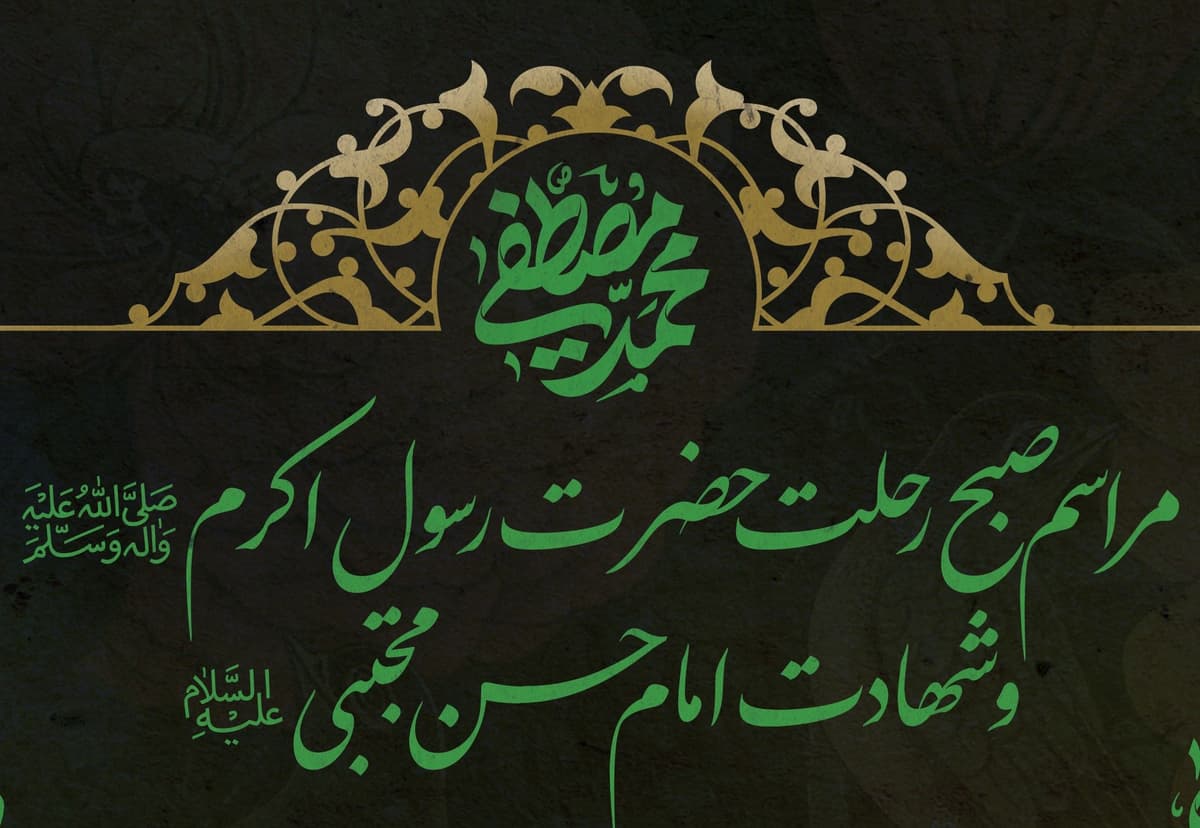 محمد مصطفی
مراسم صبح رحلت حضرت رسول اکرم صَلَّی اللّٰهُ عَلَیْهِ وَاٰلِهِ وَسَلَّمَ
و شهادت امام حسن مجتبی عَلَیْهِ السَّلَام